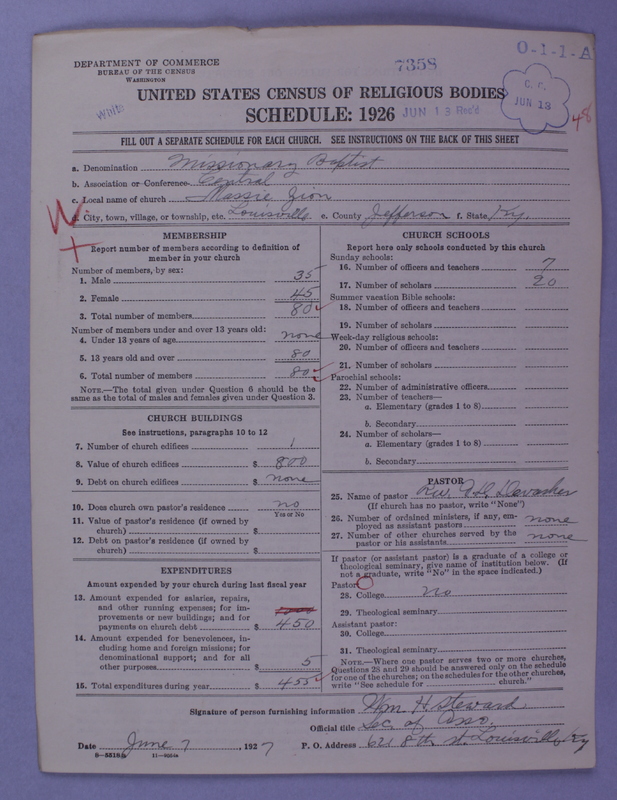 DEPARTMENT OF COMMERCE
BUREAU OF THE CENSUS
WASHINGTON
7358
O-1-1-A
White
UNITED STATES CENSUS OF RELIGIOUS BODIES
SCHEDULE: 1926
JUN 13 Rec'd
C. C.
JUN 13
48
FILL OUT A SEPARATE SCHEDULE FOR EACH CHURCH. SEE INSTRUCTIONS ON THE BACK OF THIS SHEET
a. Denomination Missionary Baptist
b. Association or Conference Central
c. Local name of church Massie Zion
d. City, town, village, or township, etc. Louisville e. County Jefferson f. State Ky.
MEMBERSHIP
Report number of members according to definition of
member in your church
Number of members, by sex:
1. Male 35
2. Female 45
3. Total number of members 80
Number of members under and over 13 years old:
4. Under 13 years of age none
5. 13 years old and over 80
6. Total number of members 80
NOTE.—The total given under Question 6 should be the
same as the total of males and females given under Question 3.
CHURCH BUILDINGS
See instructions, paragraphs 10 to 12
7. Number of church edifices 1
8. Value of church edifices $ 800
9. Debt on church edifices $ none
10. Does church own pastor's residence no
Yes or No
11. Value of pastor's residence (if owned by
church) $
12. Debt on pastor's residence (if owned by
church) $
EXPENDITURES
Amount expended by your church during last fiscal year
13. Amount expended for salaries, repairs,
and other running expenses; for im-
provements or new buildings; and for
payments on church debt $ 450
14. Amount expended for benevolences, in-
cluding home and foreign missions; for
denominational support; and for all
other purposes $ 5
15. Total expenditures during year $ 455
CHURCH SCHOOLS
Report here only schools conducted by this church
Sunday schools:
16. Number of officers and teachers 7
17. Number of scholars 20
Summer vacation Bible schools:
18. Number of officers and teachers
19. Number of scholars
Week-day religious schools:
20. Number of officers and teachers
21. Number of scholars
Parochial schools:
22. Number of administrative officers
23. Number of teachers—
a. Elementary (grades 1 to 8)
b. Secondary
24. Number of scholars—
a. Elementary (grades 1 to 8)
b. Secondary
PASTOR
25. Name of pastor Rev.
(If church has no pastor, write "None")
26. Number of ordained ministers, if any, em-
ployed as assistant pastors none
27. Number of other churches served by the
pastor or his assistants none
If pastor (or assistant pastor) is a graduate of a college or
theological seminary, give name of institution below. (If
not a graduate, write "No" in the space indicated.)
Pastor:
28. College No
29. Theological seminary
Assistant pastor:
30. College
31. Theological seminary
NOTE.—Where one pastor serves two or more churches,
Questions 28 and 29 should be answered only on the schedule
for one of the churches; on the schedules for the other churches,
write "See schedule for church."
Signature of person furnishing information Wm H. Steward
Official title Sec. of Asso.
Date June 7, 1927 P. O. Address 621 8th st. Louisville, Ky